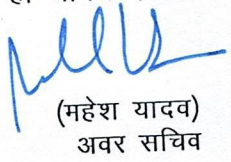 (महेश यादव)
अवर सचिव